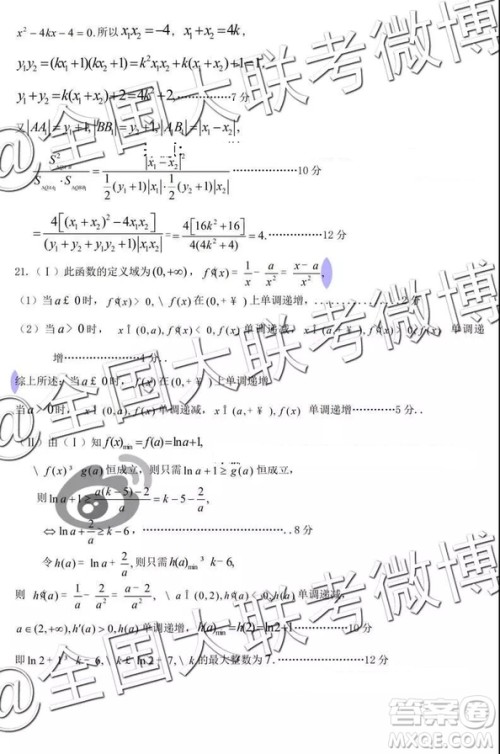 x²-4kx-4=0.所以 x₁x₂=-4， x₁+x₂=4k，
y₁y₂=(kx₁+1)(kx₂+1)=k²x₁x₂+k(x₁+x₂)+1=1，
y₁+y₂=k(x₁+x₂)+2=4k²+2，……………7分
又|AA₁|=y₁+1,|BB₁|=y₂+1,|A₁B₁|=|x₁-x₂|，
=|x₁-x₂|²/(1/2(y₁+1)|x₁|·1/2(y₂+1)|x₂|)……………10分
=4[(x₁+x₂)²-4x₁x₂]/(y₁+y₂+y₁y₂+1)|x₁x₂|=4[16k²+16]/4(4k²+4)=4.……………12分
21.（Ⅰ）此函数的定义域为(0,+∞)，f¢(x)=1/x-a/x²=(x-a)/x²
（1）当a£0时， f¢(x)>0,\f(x)在(0,+¥)上单调递增，
（2）当a>0时， xÎ(0,a),f¢(x)<0,f(x)单调递减， xÎ(a,+¥),f¢(x)>0,f(x)单调递
增……………4分．
综上所述：当a£0时， f(x)在(0,+¥)上单调递增
当a>0时， xÎ(0,a),f(x)单调递减， xÎ(a,+¥),f(x)单调递增……………5分．．
（Ⅱ）由（Ⅰ）知 f(x)min=f(a)=lna+1,
\f(x)³g(a)恒成立，则只需lna+1≥g(a)恒成立，
则lna+1≥(a(k-5)-2)/a=k-5-2/a，
⇔lna+2/a≥k-6，……………．．8分
令h(a)=lna+2/a,则只需h(a)min³k-6,
则 h¢(a)=1/a-2/a²=(a-2)/a²，\aÎ(0,2),h¢(a)<0,h(a)单调递减，
a∈(2,+∞),h′(a)>0,h(a)单调递增，h(a)min=h(2)=ln2+1……………10分
即ln2+1³k-6,\k£ln2+7,\k的最大整数为7.……………12分
@全国大联考微博
@全国大联考微博
@全国大联考微博
答案圈
MXQE.COM